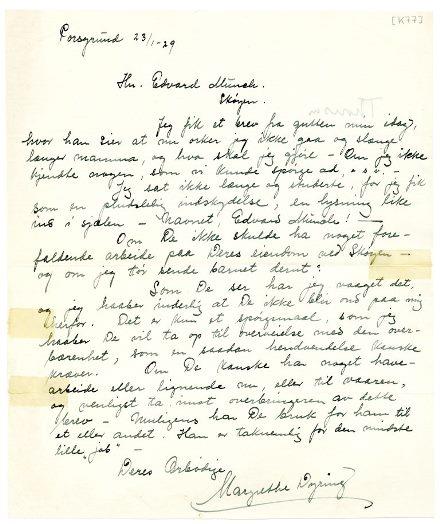 [K773]
Porsgrund 23/1-29
Hr. Edvard Munch.
Skøyen.
Jeg fik et brev fra gutten min idag,
hvor han sier at nu orker jeg ikke gaa og slænge
længer mamma, og hva skal jeg gjøre – Om jeg ikke
kjendte nogen, som vi kunde spørge ad,
Jeg sat ikke længe og studerte, for jeg fik
som en pludselig indskydelse, en lysning like
ind i sjælen – Navnet, Edvard Munch! –
Om De ikke skulde ha noget fore-
faldende arbeide paa Deres eiendom ved Skøyen –
og om jeg tør sende barnet derut?
Som De ser har jeg vaaget det,
og jeg haaber inderlig at De ikke blir ond paa mig
herfor. Det er kun et spørgsmaal, som jeg
haaber De vil ta op til overveielse med den over-
bærenhet, som en saadan henvendelse kanske
kræver. Om De kanske har noget have-
arbeide eller lignende nu, eller til vaaren,
og venligst ta imot overbringeren av dette
brev – Muligens har De bruk for ham til
et eller andet. Han er taknemlig for den mindste
lille „job" –
Deres Ærbødige
Margrethe Dyring